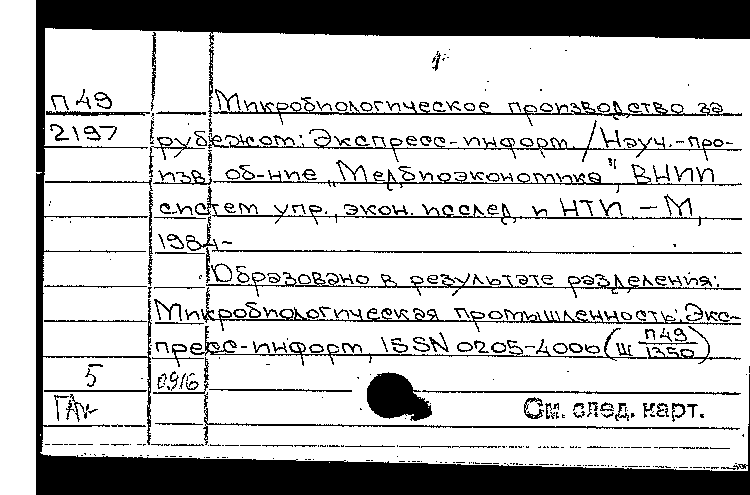 1
П49 Микробиологическое производство за
2197 рубежом: Экспресс-информ. / Науч.-про-
изв. об-ние „Медбиоэкономика", ВНИИ
систем упр., экон. исслед. и НТИ. – М.,
1984-
Образовано в результате разделения:
Микробиологическая промышленность: Экс-
пресс-информ., ISSN 0205-4006 (Ш П49/1350)
5 0916
См. след. карт.